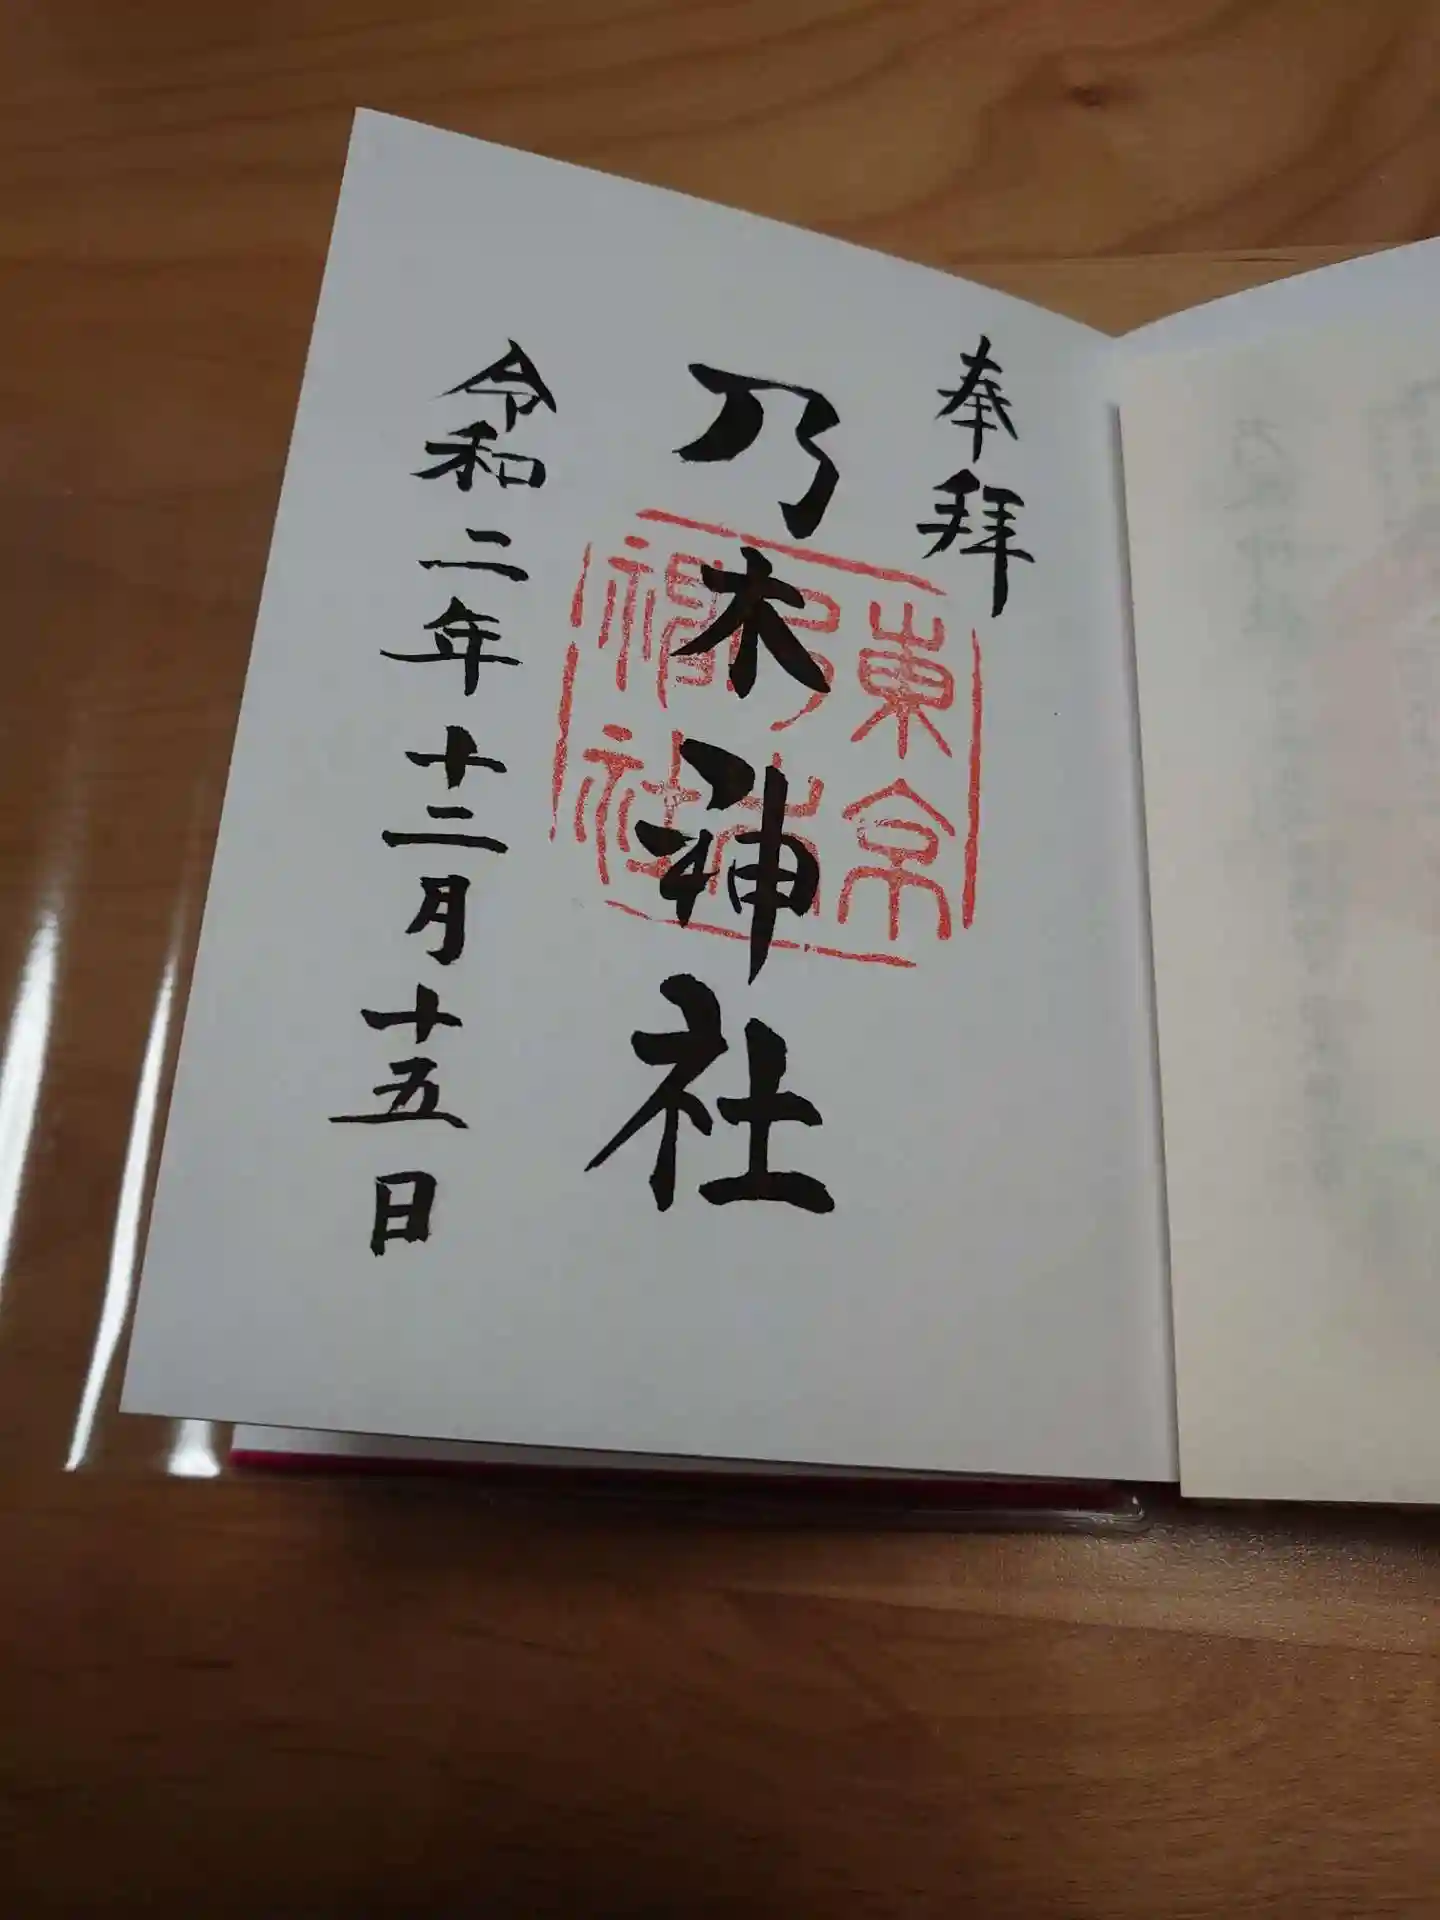 奉拝
乃木神社
東京
乃木
神社
令和二年十二月十五日